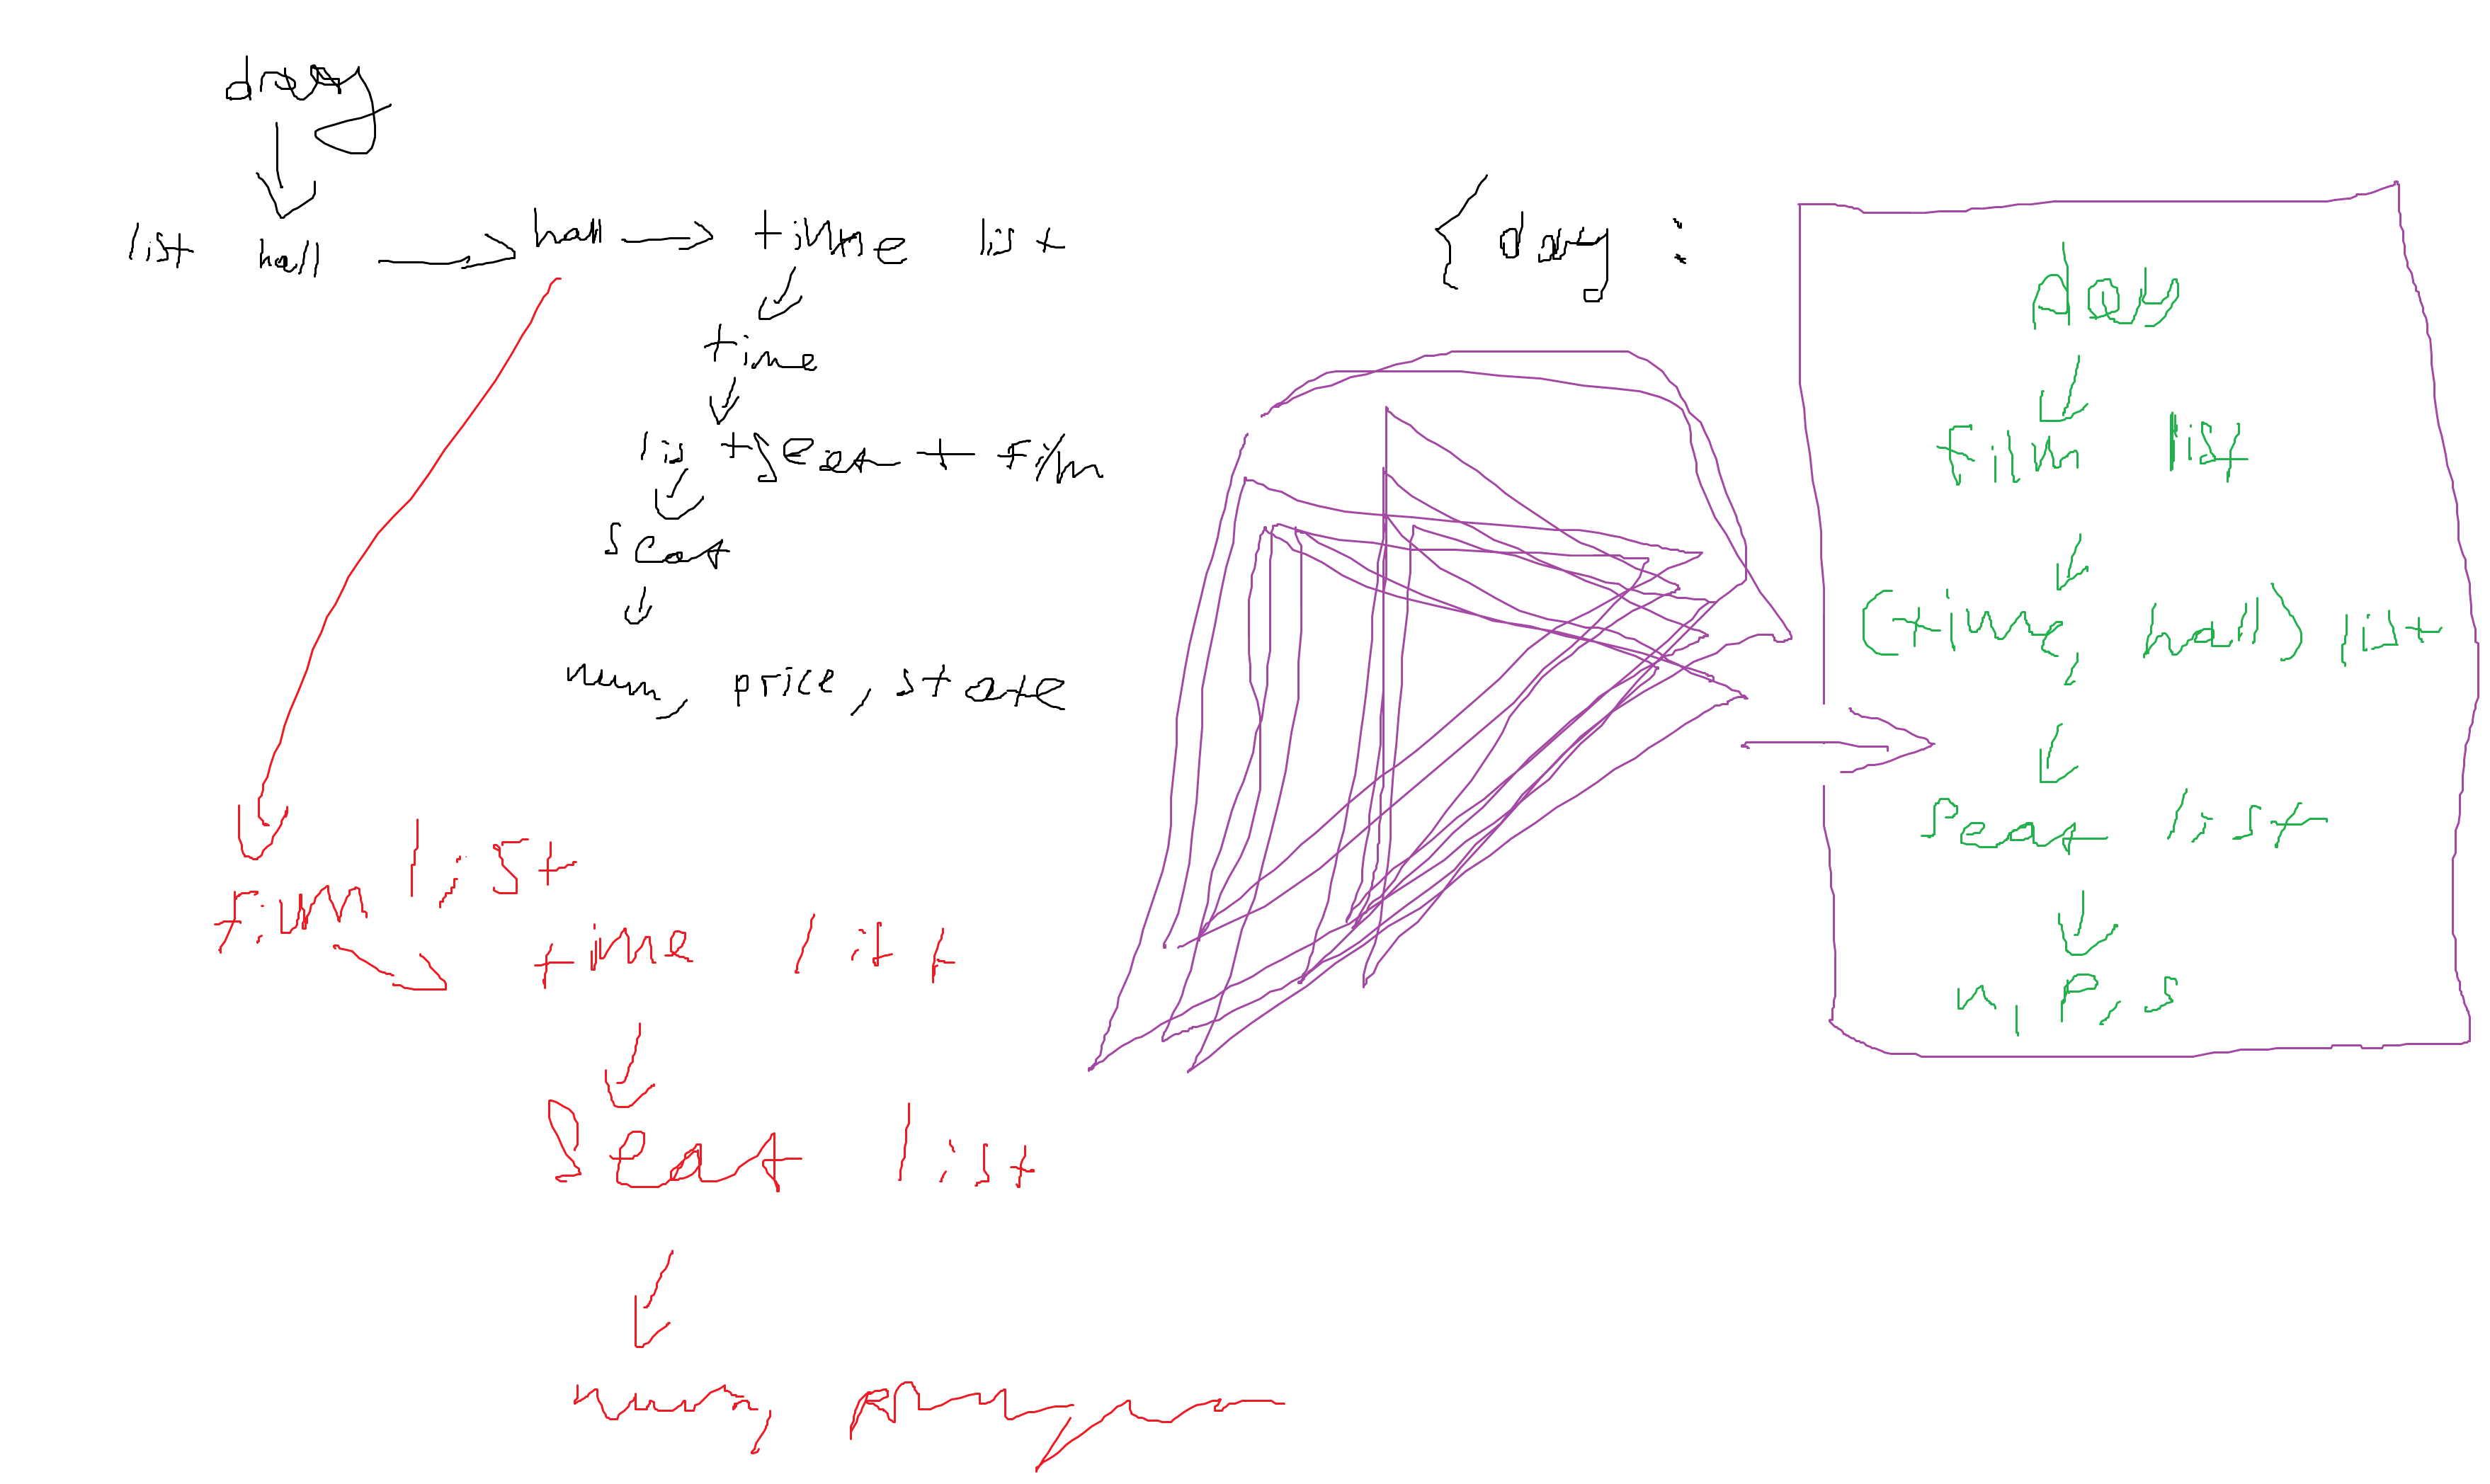 day
list hall hall time list
time
list seat + film
seat
num, price, state
film list
time list
seat list
num,
{ day :
day
film list
(time, hall) list
seat list
n, p, s